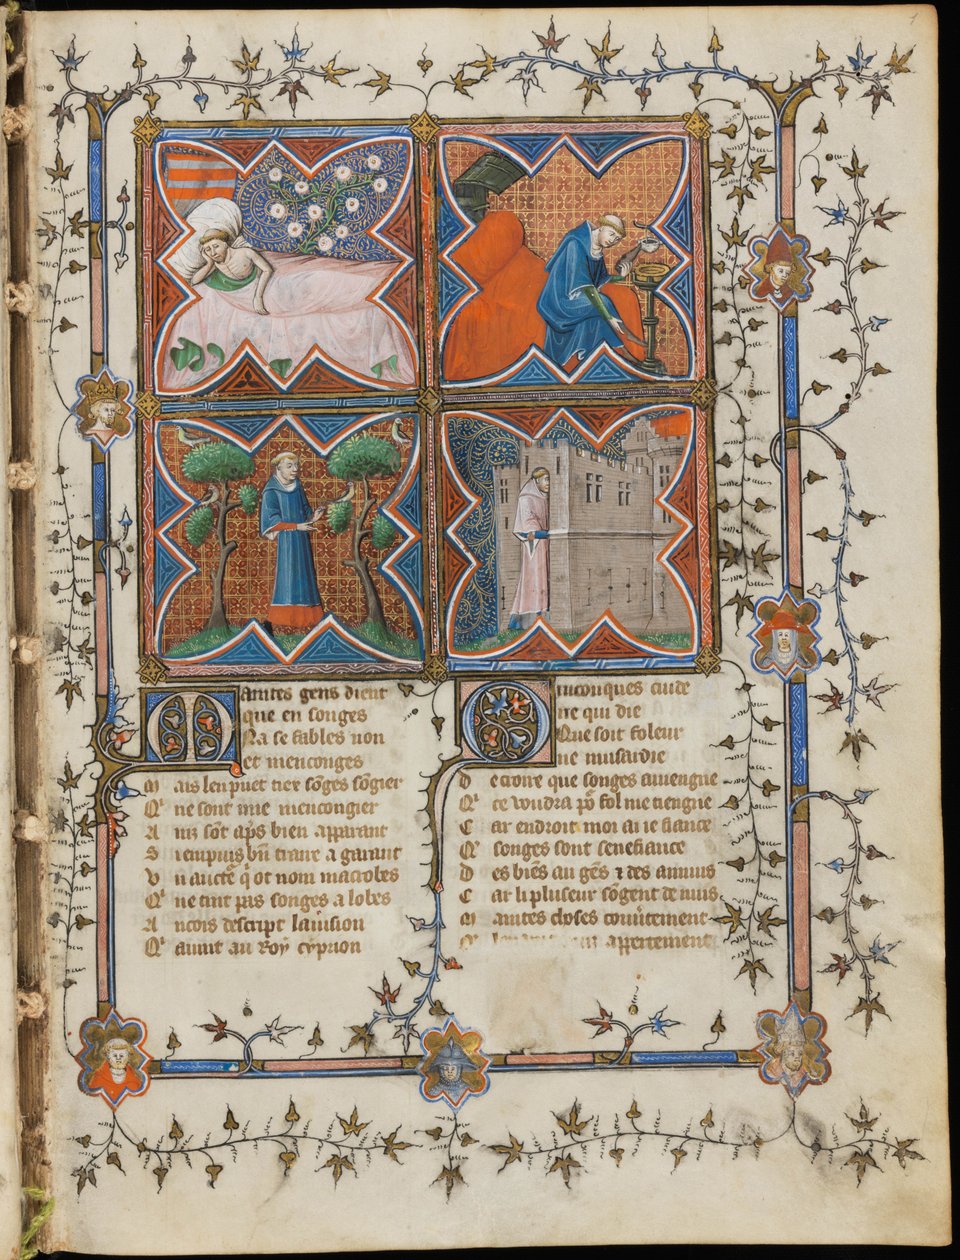 Maintes gens dient
que en songes
Na se fables non
et menconges
Mais len puet tiex sōges sōgier
Qi ne sont mie mencongier
Ainz sōt ap̄s bien apparant
Si en puis bn̄ traire a garant
Vn aucte q̄ ot nom macroles
Qi ne tint pas songes a lobes
Ancois descript lauision
Qi auint au Roy cyprion
Quiconques cuide
ne qui die
Que soit foleur
ne musardie
De croire que songes auiengne
Qi ce voudra pō fol me tiengne
Car endroit moi ai ie fiance
Qi songes sont senefiance
Des biēs au gēs ⁊ des annuis
Car li pluseur sōgent de nuis
Maintes choses couūtement
appertement